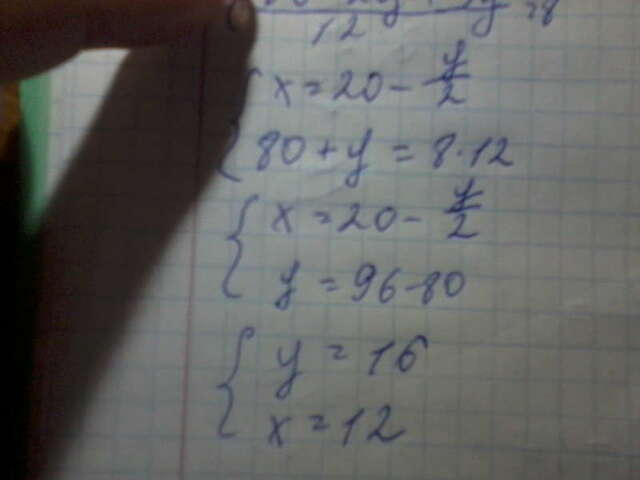 12 =8
x = 20 - y/2
80 + y = 8 · 12
x = 20 - y/2
y = 96 - 80
y = 16
x = 12